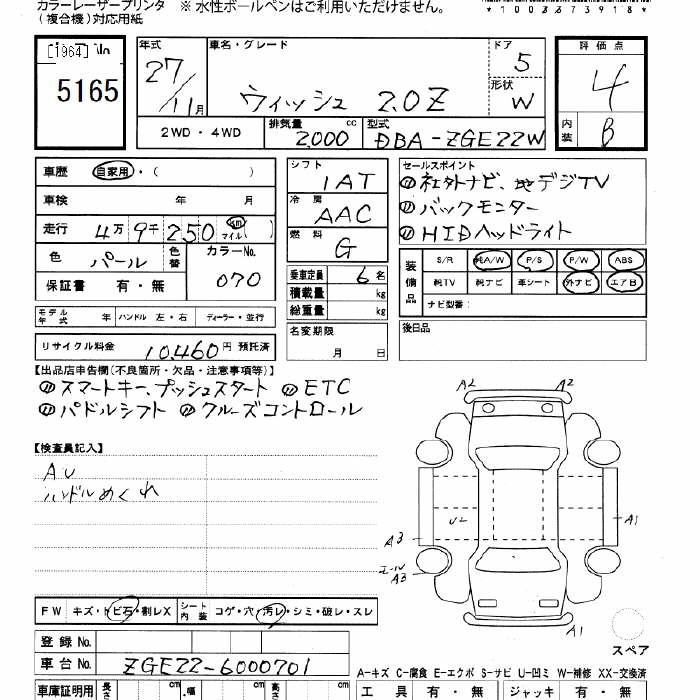 カラーレーザープリンタ ※ 水性ボールペンはご利用いただけません。
(複合機)対応用紙
*1003673918*
[1964]
5165
年式 27/11月
車名・グレード ウィッシュ 2.0Z
ドア 5
形状 W
評価点 4
内装 B
2WD・4WD
排気量 2,000 cc
型式 DBA-ZGE22W
車歴 自家用・( )
車検 年 月
走行 4万9千250 km マイル( )
色 パール 色替 カラーNo. 070
保証書 有・無
シフト 1AT
冷房 AAC
燃料 G
乗車定員 6名
積載量 kg
総重量 kg
名変期限 月 日
セールスポイント
社外ナビ、地デジTV
バックモニター
HIDヘッドライト
装備品 S/R 純A/W P/S P/W ABS
純TV 純ナビ 革シート 外ナビ エアB
ナビ型番:
後日品
モデル年式 年 ハンドル 左・右 ディーラー・並行
リサイクル料金 10,460円 預託済
【出品店申告欄(不良箇所・欠品・注意事項等)】
スマートキー、プッシュスタート ETC
パドルシフト クルーズコントロール
【検査員記入】
AU
ハンドルめくれ
A2 A2
U2
A3
A1
A3
A1
スペア
FW キズ・トビ石・割レX シート内装 コゲ・穴・汚レ・シミ・破レ・スレ
登録No.
車台No. ZGE22-6000701
A-キズ C-腐食 E-エクボ S-サビ U-凹ミ W-補修 XX-交換済
車庫証明用 長さ cm 幅 cm 高さ cm
工具 有・無 ジャッキ 有・無